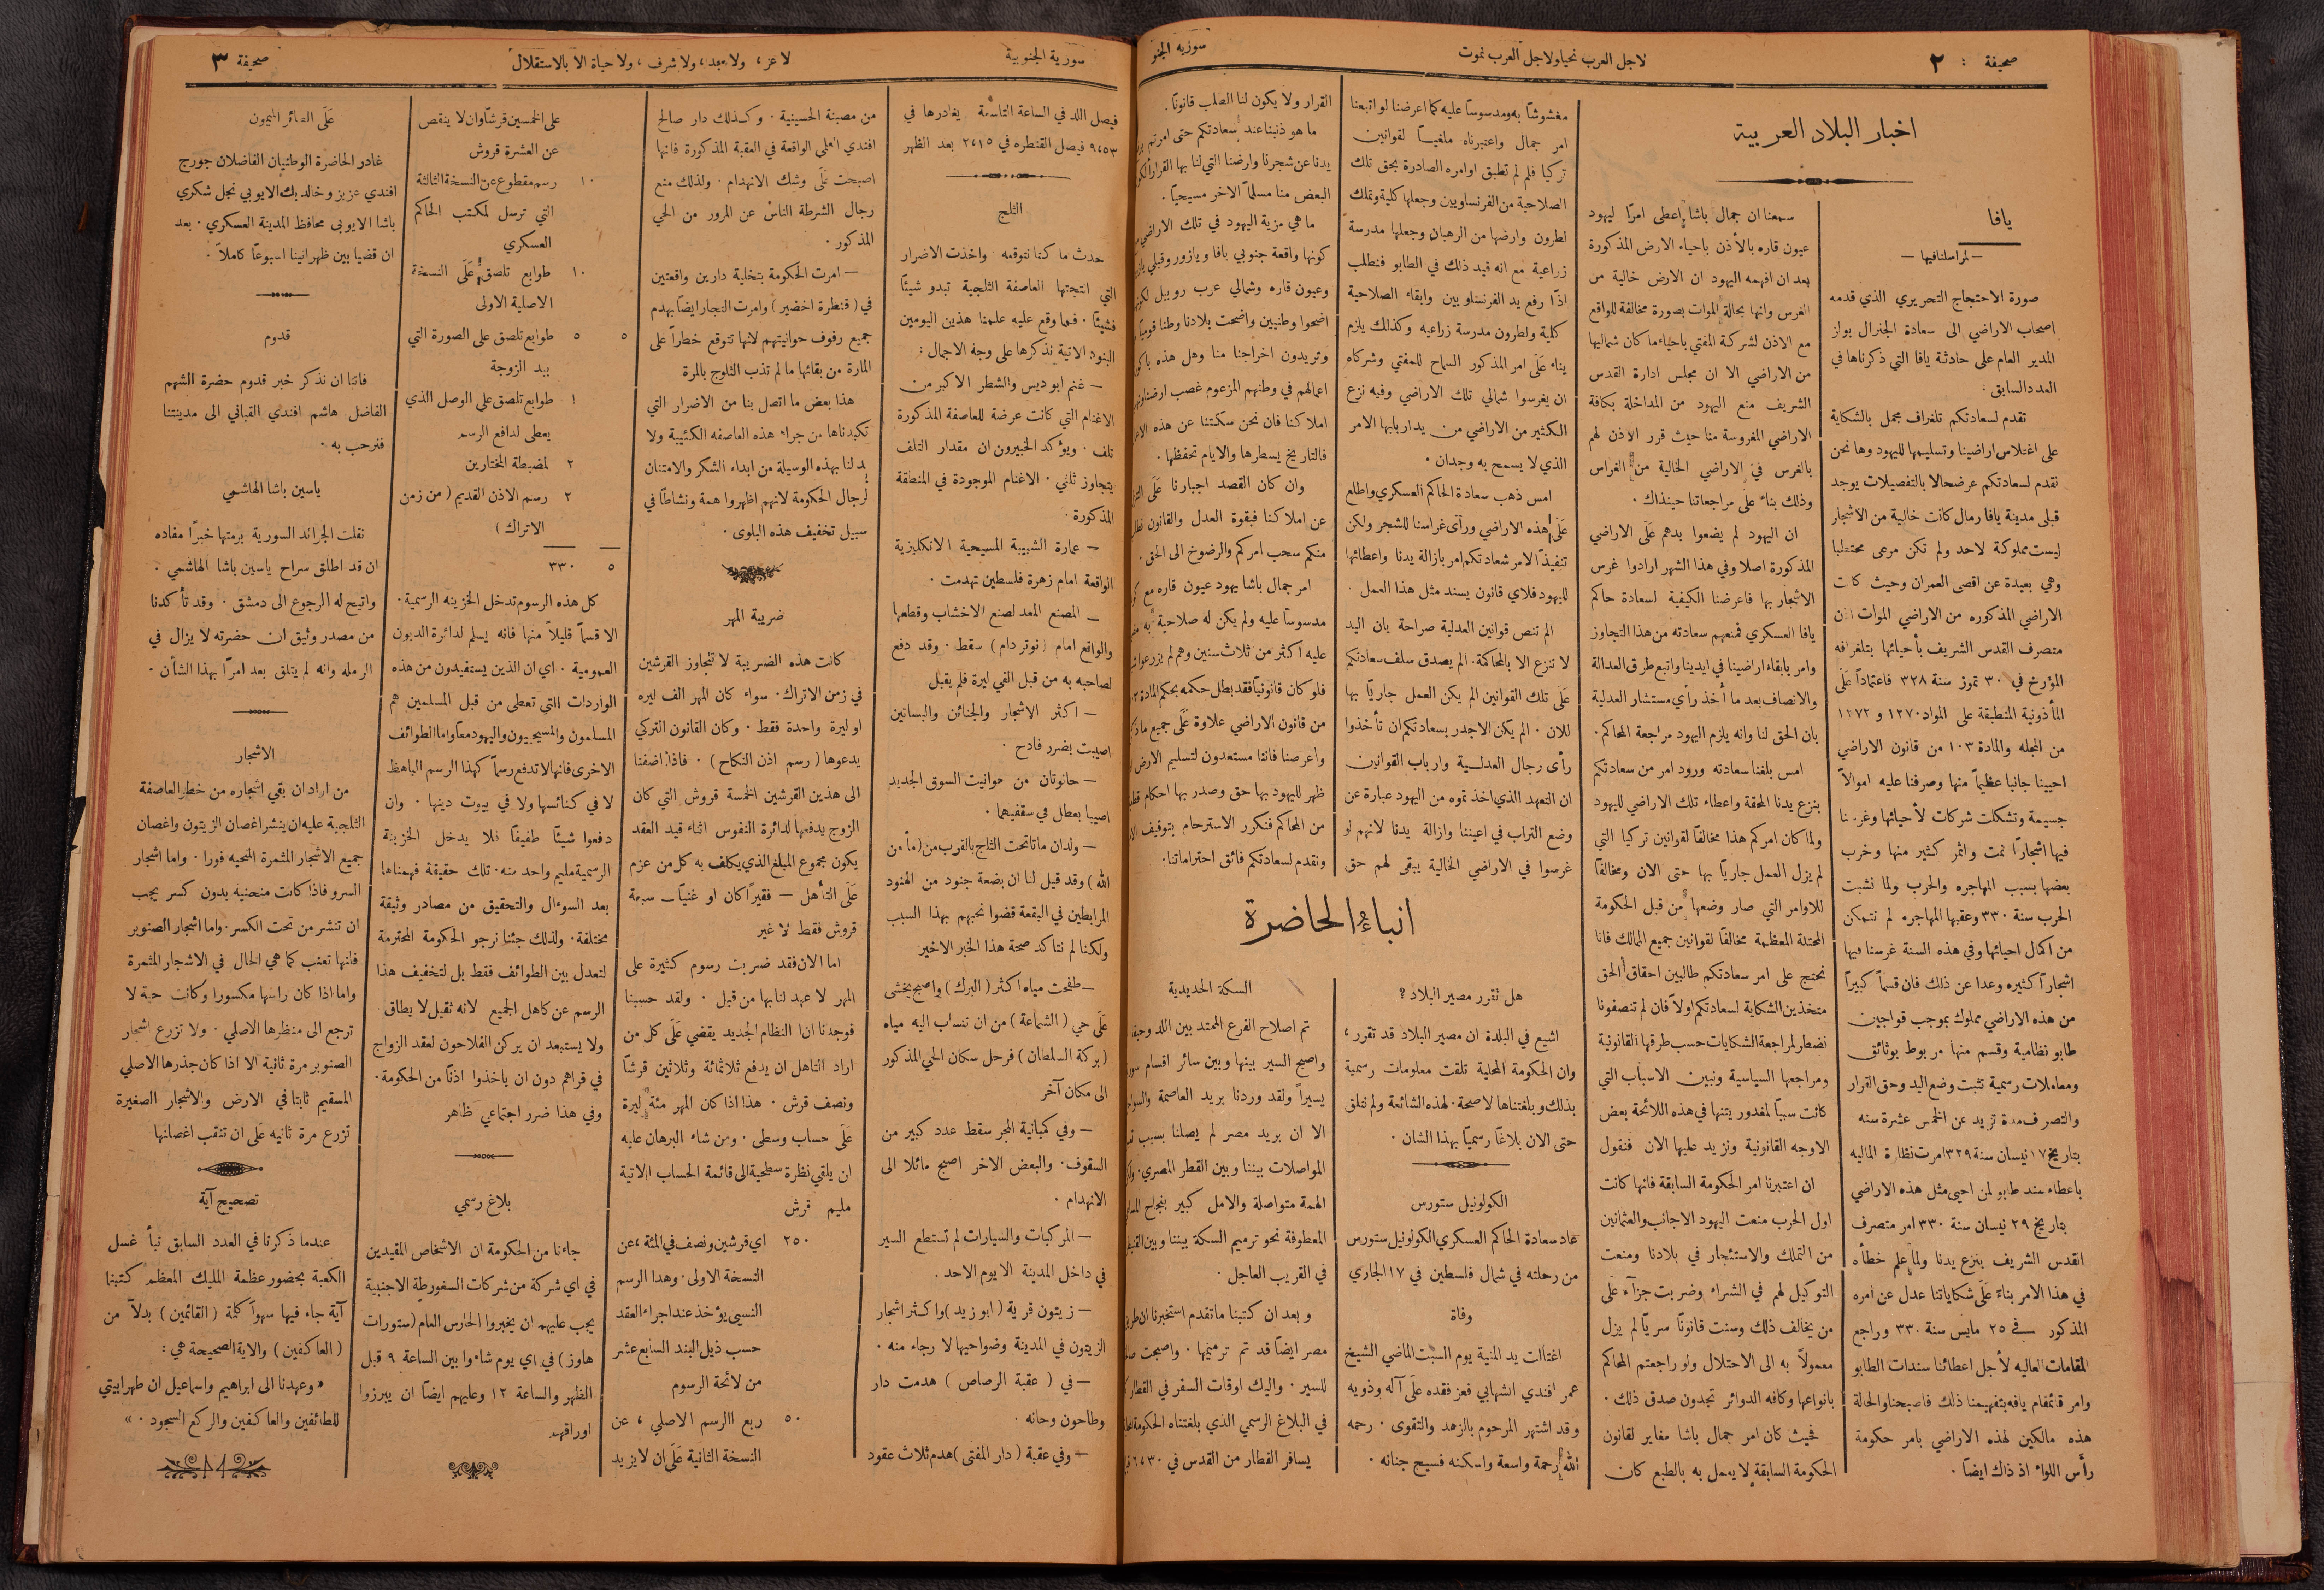 صحيفة : ٢
لاجل العرب نحيا ولاجل العرب نموت
سورية الجنو
اخبار البلاد العربية
يافا
— لمراسلنا فيها —
صورة الاحتجاج التحريري الذي قدمه
اصحاب الاراضي الى سعادة الجنرال بولز
المدير العام على حادثة يافا التي ذكرناها في
العدد السابق :
تقدم لسعادتكم تلغراف مجمل بالشكاية
على اغتلاس اراضينا وتسليمها لليهود وها نحن
نقدم لسعادتكم عرضحالا بالتفصيلات يوجد
قبلى مدينة يافا رمال كانت خالية من الاشجار
ليست مملوكة لاحد ولم تكن مرعى محتطبا
وهي بعيدة عن اقصى العمران وحيث كانت
الاراضي المذكوره من الاراضي الموات اذن
متصرف القدس الشريف بأحيائها بتلغرافه
المؤرخ في ٣٠ تموز سنة ٣٢٨ فاعتماداً عَلَى
المأذونية المنطبقة على المواد ١٢٧٠ و ١٢٧٢
من المجله والمادة ١٠٣ من قانون الاراضي
احيينا جانبا عظيماً منها وصرفنا عليه اموالاً
جسيمة وتشكلت شركات لأحيائها وغرسنا
فيها اشجاراً نمت واثمر كثير منها وخرب
بعضها بسبب المهاجره والحرب ولما نشبت
الحرب سنة ٣٣٠ وعقبها المهاجره لم نتمكن
من اكمال احيائها وفي هذه السنة غرسنا فيها
اشجاراً كثيره وعدا عن ذلك فان قسماً كبيراً
من هذه الاراضي مملوك بموجب قواجين
طابو نظامية وقسم منها مربوط بوثائق
ومعاملات رسمية تثبت وضع اليد وحق القرار
والتصرف مدة تزيد عن الخمس عشرة سنه
بتاريخ ١٧ نيسان سنة ٣٢٩ امرت نظارة الماليه
باعطاء سند طابو لمن احيى مثل هذه الاراضي
بتاريخ ٢٩ نيسان سنة ٣٣٠ امر متصرف
القدس الشريف بنزع يدنا ولما علم خطأه
في هذا الامر بناءً عَلَى شكاياتنا عدل عن امره
المذكور في ٢٥ مايس سنة ٣٣٠ وراجع
المقامات العاليه لأجل اعطائنا سندات الطابو
وامر قائمقام يافه بتفهيمنا ذلك فاصبحنا والحالة
هذه مالكين لهذه الاراضي بامر حكومة
رأس اللواء اذ ذاك ايضاً .
سمعنا ان جمال باشا اعطى امراً ليهود
عيون قاره بالأذن باحياء الارض المذكورة
بعد ان افهمه اليهود ان الارض خالية من
الغرس وانها بحالة الموات بصورة مخالفة للواقع
مع الاذن لشركة المفتي باحياء ما كان شماليها
من الاراضي الا ان مجلس ادارة القدس
الشريف منع اليهود من المداخلة بكافة
الاراضي المغروسة منا حيث قرر الاذن لهم
بالغرس في الاراضي الخالية من الغراس
وذلك بناء على مراجعاتنا حينذاك .
ان اليهود لم يضعوا يدهم عَلَى الاراضي
المذكورة اصلا وفي هذا الشهر ارادوا غرس
الاشجار بها فاعرضنا الكيفية لسعادة حاكم
يافا العسكري فمنعهم سعادته من هذا التجاوز
وامر بابقاء اراضينا في ايدينا واتبع طرق العدالة
والانصاف بعد ما أخذ رأي مستشار العدلية
بان الحق لنا وانه يلزم اليهود مراجعة المحاكم .
امس بلغنا سعادته ورود امر من سعادتكم
بنزع يدنا المحقة واعطاء تلك الاراضي لليهود
ولما كان امركم هذا مخالفًا لقوانين تركيا التي
لم يزل العمل جاريًا بها حتى الان ومخالفًا
للاوامر التي صار وضعها من قبل الحكومة
المحتلة المعظمة مخالفًا لقوانين جميع الممالك فانا
نحتج على امر سعادتكم طالبين احقاق الحق
متخذين الشكاية لسعادتكم اولاً فان لم تنصفونا
نضطر لمراجعة الشكايات حسب طرقها القانونية
ومراجعها السياسية ونبين الاسباب التي
كانت سببًا لمغدوريتنا في هذه اللائحة بعض
الاوجه القانونية ونزيد عليها الان فنقول
ان اعتبرنا امر الحكومة السابقة فانها كانت
اول الحرب منعت اليهود الاجانب والعثمانين
من التملك والاستئجار في بلادنا ومنعت
التوكيل لهم في الشراء وضربت جزآء على
من يخالف ذلك وسنت قانونًا سريًا لم يزل
معمولاً به الى الاحتلال ولو راجعتم المحاكم
بانواعها وكافه الدوائر تجدون صدق ذلك .
فحيث كان امر جمال باشا مغاير لقانون
الحكومة السابقة لا يعمل به بالطبع كان
مغشوشًا به ومدسوسًا عليه كما اعرضنا لو اتبعنا
امر جمال واعتبرناه ملغيًا لقوانين
تركيا فلم لم تطبق اوامره الصادرة بحق تلك
الصلاحية من الفرنساويين وجعلها كلية وتملك
لطرون وارضها من الرهبان وجعلها مدرسة
زراعية مع انه قيد ذلك في الطابو فنطلب
اذًا رفع يد الفرنساويين وابقاء الصلاحية
كلية ولطرون مدرسة زراعيه وكذلك يلزم
بناء عَلَى امر المذكور السماح للمفتي وشركاه
ان يغرسوا شمالي تلك الاراضي وفيه نزع
الكثير من الاراضي من يد اربابها الامر
الذي لا يسمح به وجدان .
امس ذهب سعادة الحاكم العسكري واطلع
عَلَى هذه الاراضي ورآى غراسنا للشجر ولكن
تنفيذاً لامر سعادتكم امر بازالة يدنا واعطائها
لليهود فلاي قانون يسند مثل هذا العمل .
الم تنص قوانين العدلية صراحة بان اليد
لا تنزع الا بالمحاكمة . الم يصدق سلف سعادتكم
عَلَى تلك القوانين الم يكن العمل جاريًا بها
للان . الم يكن الاجدر بسعادتكم ان تأخذوا
رأى رجال العدلية وارباب القوانين
ان التعهد الذي اخذتموه من اليهود عبارة عن
وضع التراب في اعيننا وازالة يدنا لانهم لو
غرسوا في الاراضي الخالية يبقى لهم حق
القرار ولا يكون لنا الطلب قانونًا .
ما هو ذنبنا عند سعادتكم حتى امرتم
يدنا عن شجرنا وارضنا التي لنا بها القرار
البعض منا مسلماً الاخر مسيحيًا .
ما هي مزية اليهود في تلك الاراضي
كونها واقعة جنوبي يافا ويازور وقبلي
وعيون قاره وشمالي عرب روبيل
اضحوا وطنيين واضحت بلادنا وطنا قوميًا
وتريدون اخراجنا منا وهل هذه
اعمالهم في وطنهم المزعوم غصب
املاكنا فان نحن سكتنا عن هذه
فالتاريخ يسطرها والايام تحفظها .
وان كان القصد اجبارنا عَلَى
عن املاكنا فبقوة العدل والقانون
منكم سحب امركم والرضوخ الى الحق .
امر جمال باشا يهود عيون قاره مع
مدسوسًا عليه ولم يكن له صلاحية به
عليه اكثر من ثلاث سنين وهم لم
فلو كان قانونيًا فقد بطل حكمه بحكم المادة
من قانون الاراضي علاوة عَلَى جميع
واعرضنا فاننا مستعدون لتسليم الارض
ظهر لليهود بها حق وصدر بها احكام
من المحاكم فنكرر الاسترحام بتوقيف
ونقدم لسعادتكم فائق احتراماتنا .
انباء الحاضرة
هل تقرر مصير البلاد ؟
اشيع في البلدة ان مصير البلاد قد تقرر ،
وان الحكومة المحلية تلقت معلومات رسمية
بذلك وبلغتناها لاصحة . لهذه الشائعة ولم نتلق
حتى الان بلاغًا رسميًا بهذا الشان .
الكولونيل ستورس
عاد سعادة الحاكم العسكري الكولونيل ستورس
من رحلته في شمال فلسطين في ١٧ الجاري
وفاة
اغتالت يد المنية يوم السبت الماضي الشيخ
عمر افندي الشهابي فعز فقده عَلَى آله وذويه
وقد اشتهر المرحوم بالزهد والتقوى . رحمه
الله رحمة واسعة واسكنه فسيح جنانه .
السكة الحديدية
تم اصلاح الفرع الممتد بين اللد وحيفا
واصبح السير بينها وبين سائر اقسام
يسيراً ولقد وردنا بريد العاصمة
الا ان بريد مصر لم يصلنا بسبب
المواصلات بيننا وبين القطر المصري .
الهمة متواصلة والامل كبير بنجاح
المعطوفة نحو ترميم السكة بيننا وبين
في القريب العاجل .
وبعد ان كتبنا ما تقدم استخبرنا ان
مصر ايضًا قد تم ترميمها . واصبحت
للسير . واليك اوقات السفر في
في البلاغ الرسمي الذي بلغتناه الحكومة
يسافر القطار من القدس في ٦،٣٠
سورية الجنوبية
لا عز ، ولا مجد ، ولا شرف ، ولا حياة الا بالاستقلال
صحيفة ٣
فيصل اللد في الساعة التاسعة يغادرها في
٩،٥٣ فيصل القنطره في ٢،١٥ بعد الظهر
الثلج
حدث ما كنا نتوقعه واخذت الاضرار
التي انتجتها العاصفة الثلجية تبدو شيئًا
فشيئًا . فمما وقع عليه علمنا هذين اليومين
البنود الاتية نذكرها على وجه الاجمال :
— غنم ابو ديس والشطر الاكبر من
الاغنام التي كانت عرضة للعاصفة المذكورة
تلف . ويؤكد الخبيرون ان مقدار التلف
يتجاوز ثلثي . الاغنام الموجودة في المنطقة
المذكورة .
— عمارة الشبيبة المسيحية الانكليزية
الواقعة امام زهرة فلسطين تهدمت .
— المصنع المعد لصنع الاخشاب وقطعها
والواقع امام (نوتر دام) سقط . وقد دفع
لصاحبه به من قبل الفي ليرة فلم يقبل
— اكثر الاشجار والجنائن والبساتين
اصيبت بضرر فادح .
— حانوتان من حوانيت السوق الجديد
اصيبا بعطل في سقفيهما .
— ولدان ماتا تحت الثلج بالقرب من (مأمن
الله) وقد قيل لنا ان بضعة جنود من الهنود
المرابطين في البقعة قضوا نحبهم بهذا السبب
ولكنا لم نتاكد صحة هذا الخبر الاخير
— طفحت مياه اكثر (البرك) واصبح يخشى
عَلَى حي (الشماعة) من ان تنساب اليه مياه
(بركة السلطان) فرحل سكان الحي المذكور
الى مكان آخر
— وفي كمبانية المجر سقط عدد كبير من
السقوف . والبعض الاخر اصبح مائلا الى
الانهدام .
— المركبات والسيارات لم تستطع السير
في داخل المدينة الا يوم الاحد .
— زيتون قرية (ابو زيد) واكثر اشجار
الزيتون في المدينة وضواحيها لا رجاء منه .
— في (عقبة الرصاص) هدمت دار
وطاحون وحانه .
— وفي عقبة (دار المفتى) هدم ثلاث عقود
من مصبنة الحسينية . وكذلك دار صالح
افندي العلي الواقعة في العقبة المذكورة فانها
اصبحت عَلَى وشك الانهدام . ولذلك منع
رجال الشرطة الناس عن المرور من الحي
المذكور .
— امرت الحكومة بتخلية دارين واقعتين
في (قنطرة اخضير) وامرت التجار ايضًا بهدم
جميع رفوف حوانيتهم لانها تتوقع خطراً على
المارة من بقائها ما لم تذب الثلوج بالمرة
هذا بعض ما اتصل بنا من الاضرار التي
تكبدناها من جراء هذه العاصفه الكئيبة ولا
بد لنا بهذه الوسيلة من ابداء الشكر والامتنان
لرجال الحكومة لانهم اظهروا همة ونشاطًا في
سبيل تخفيف هذه البلوى .
ضريبة المهر
كانت هذه الضريبة لا تتجاوز القرشين
في زمن الاتراك . سواء كان المهر الف ليره
او ليرة واحدة فقط . وكان القانون التركي
يدعوها (رسم اذن النكاح) . فاذا اضفنا
الى هذين القرشين الخمسة قروش التي كان
الزوج يدفعها لدائرة النفوس اثناء قيد العقد
يكون مجموع المبلغ الذي يكلف به كل من عزم
عَلَى التأهل — فقيراً كان او غنيًا — سبعة
قروش فقط لا غير
اما الان فقد ضربت رسوم كثيرة على
المهر لا عهد لنا بها من قبل . ولقد حسبنا
فوجدنا ان النظام الجديد يقضي عَلَى كل من
اراد التاهل ان يدفع ثلاثمائة وثلاثين قرشًا
ونصف قرش . هذا اذا كان المهر مئة ليرة
عَلَى حساب وسطى . ومن شاء البرهان عليه
ان يلقي نظرة سطحية الى قائمة الحساب الاتية
مليم قرش
٢٥٠ اي قرشين ونصف في المئة ، عن
النسخة الاولى . وهدا الرسم
النسبي يؤخذ عند اجراء العقد
حسب ذيل البند السابع عشر
من لائحة الرسوم
٥٠ ربع الرسم الاصلي ، عن
النسخة الثانية عَلَى ان لا يزيد
على الخمسين قرشًا وان لا ينقص
عن العشرة قروش
١٠ رسم مقطوع عن النسخة الثالثة
التي ترسل لمكتب الحاكم
العسكري
١٠ طوابع تلصق عَلَى النسخة
الاصلية الاولى
٥ ٥ طوابع تلصق على الصورة التي
بيد الزوجة
١ طوابع تلصق على الوصل الذي
يعطى لدافع الرسم
٢ لمضبطة المختارين
٢ رسم الاذن القديم (من زمن
الاتراك)
٥ ٣٣٠
كل هذه الرسوم تدخل الخزينه الرسمية .
الا قسماً قليلاً منها فانه يسلم لدائرة الديون
العمومية . اي ان الذين يستفيدون من هذه
الواردات التي تعطى من قبل المسلمين هم
المسلمون والمسيحييون واليهود معًا واما الطوائف
الاخرى فانها لا تدفع رسماً كهذا الرسم الباهظ
لا في كنائسها ولا في بيوت دينها . وان
دفعوا شيئًا طفيفًا فلا يدخل الخزينة
الرسمية مليم واحد منه . تلك حقيقة فهمناها
بعد السوءال والتحقيق من مصادر وثيقة
مختلفة . ولذلك جئنا نرجو الحكومة المحترمة
لتعدل بين الطوائف فقط بل لتخفيف هذا
الرسم عن كاهل الجميع لانه ثقيل لا يطاق
ولا يستبعد ان يركن الفلاحون لعقد الزواج
في قراهم دون ان ياخذوا اذنًا من الحكومة .
وفي هذا ضرر اجتماعي ظاهر
بلاغ رسمي
جاءنا من الحكومة ان الاشخاص المقيدين
في اي شركة من شركات السغورطة الاجنبية
يجب عليهم ان يخبروا الحارس العام (ستورات
هاوز) في اي يوم شاءوا بين الساعة ٩ قبل
الظهر والساعة ١٢ وعليهم ايضًا ان يبرزوا
اوراقهم
عَلَى الطائر الميمون
غادر الحاضرة الوطنيان الفاضلان جورج
افندي عزيز وخالد بك الايوبي نجل شكري
باشا الايوبى محافظ المدينة العسكري . بعد
ان قضيا بين ظهرانينا اسبوعًا كاملاً .
قدوم
فاتنا ان نذكر خبر قدوم حضرة الشهم
الفاضل هاشم افندي القباني الى مدينتنا
فنرحب به .
ياسين باشا الهاشمي
نقلت الجرائد السورية برمتها خبراً مفاده
ان قد اطلق سراح ياسين باشا الهاشمي .
واتيح له الرجوع الى دمشق . وقد تأكدنا
من مصدر وثيق ان حضرته لا يزال في
الرمله وانه لم يتلق بعد امراً بهذا الشأن .
الاشجار
من اراد ان بقي اشجاره من خطر العاصفة
الثلجية عليه ان ينشر اغصان الزيتون واغصان
جميع الاشجار المثمرة المنحيه فورا . واما اشجار
السرو فاذا كانت منحنيه بدون كسر يجب
ان تنشر من تحت الكسر . واما اشجار الصنوبر
فانها تعنب كما هي الحال في الاشجار المثمرة
واما اذا كان راسها مكسورا وكانت حبة لا
ترجع الى منظرها الاصلي . ولا تزرع اشجار
الصنوبر مرة ثانية الا اذا كان جذرها الاصلي
المسقيم ثابتا في الارض والاشجار الصغيرة
تزرع مرة ثانيه عَلَى ان تنقب اغصانها
تصحيح آية
عندما ذكرنا في العدد السابق نبأ غسل
الكعبة بحضور عظمة المليك المعظم كتبنا
آية جاء فيها سهواً كلمة (القائمين) بدلاً من
(العاكفين) والاية الصحيحة هي :
« وعهدنا الى ابراهيم واسماعيل ان طهرا بيتي
للطائفين والعاكفين والركع السجود . »